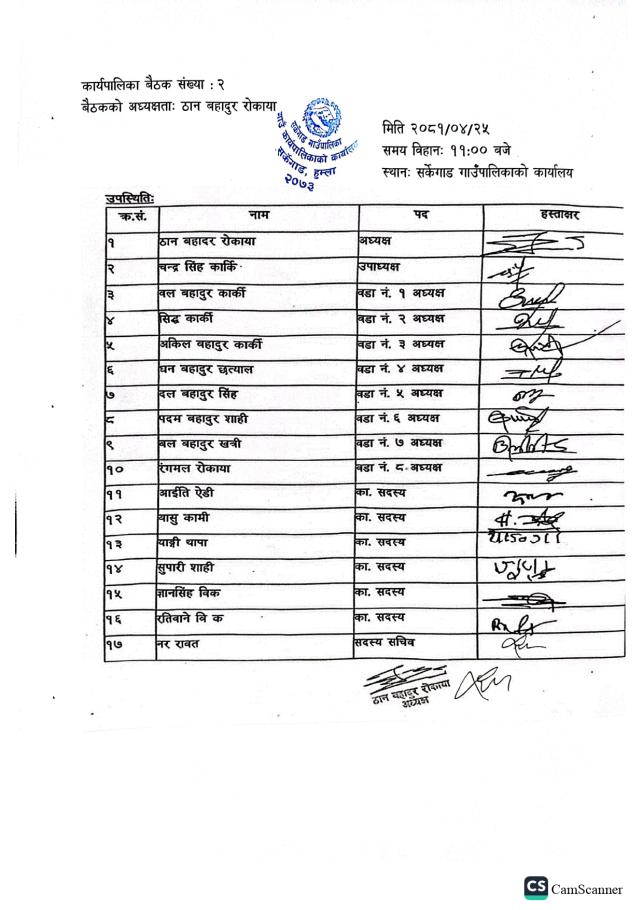 कार्यपालिका बैठक संख्या : २
बैठकको अध्यक्षताः ठान बहादुर रोकाया
सर्केगाड गाउँपालिका
गाउँ कार्यपालिकाको कार्यालय
सर्केगाड, हुम्ला
२०७३
मिति २०८१/०४/२५
समय विहानः ११:०० बजे
स्थानः सर्केगाड गाउँपालिकाको कार्यालय
उपस्थितिः
क्र.सं. नाम पद हस्ताक्षर
१ ठान बहादर रोकाया अध्यक्ष
२ चन्द्र सिंह कार्कि उपाध्यक्ष
३ वल बहादुर कार्की वडा नं. १ अध्यक्ष
४ सिद्ध कार्की वडा नं. २ अध्यक्ष
५ अकिल बहादुर कार्की वडा नं. ३ अध्यक्ष
६ धन बहादुर छत्याल वडा नं. ४ अध्यक्ष
७ दल बहादुर सिंह वडा नं. ५ अध्यक्ष
८ पदम बहादुर शाही वडा नं. ६ अध्यक्ष
९ बल बहादुर खत्री वडा नं. ७ अध्यक्ष
१० रंगमल रोकाया वडा नं. ८ अध्यक्ष
११ आईति ऐडी का. सदस्य
१२ वासु कामी का. सदस्य
१३ याङ्गी थापा का. सदस्य
१४ सुपारी शाही का. सदस्य
१५ ज्ञानसिंह विक का. सदस्य
१६ रतिवाने वि क का. सदस्य
१७ नर रावत सदस्य सचिव
ठान बहादुर रोकाया
अध्यक्ष
CS CamScanner